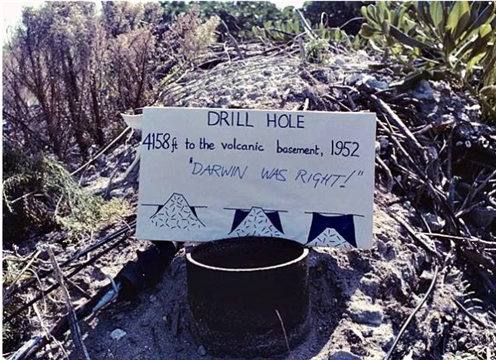 DRILL HOLE
4158 ft to the volcanic basement, 1952
"DARWIN WAS RIGHT!"